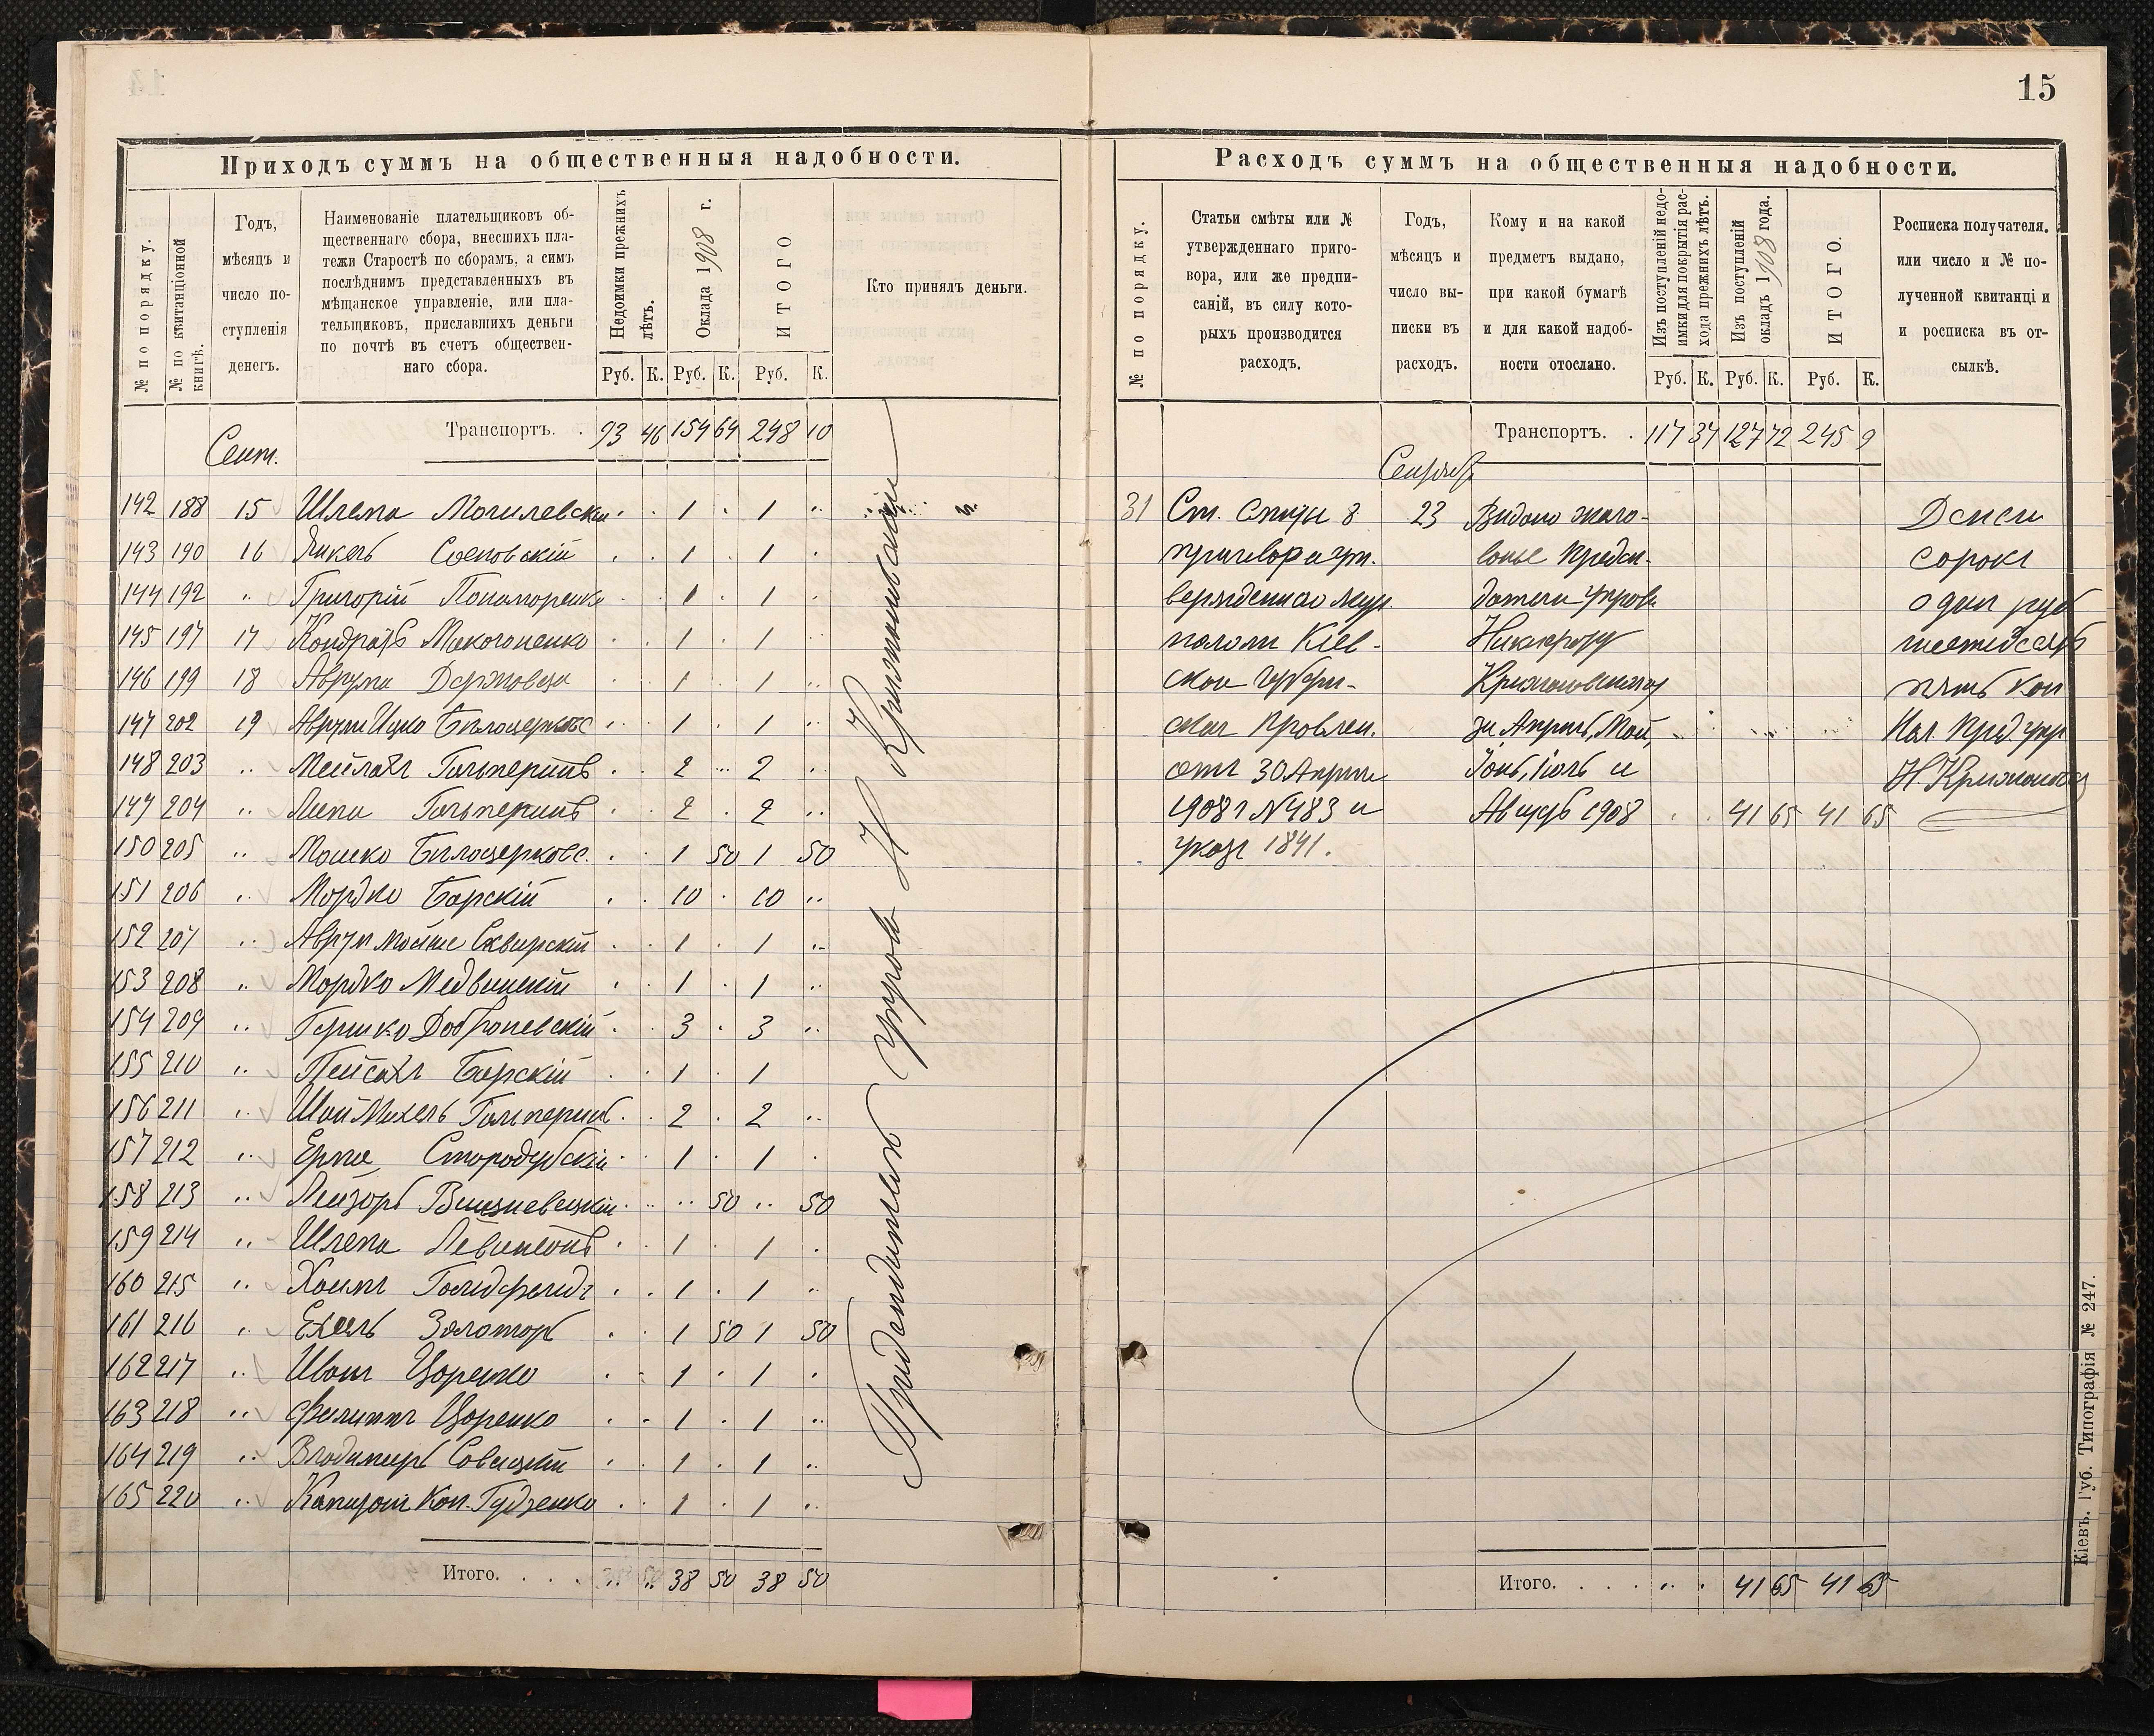 15
Приходъ суммъ на общественныя надобности.
№ по порядку.
№ по квитанціонной книгѣ.
Годъ, мѣсяцъ и число поступленія денегъ.
Наименованіе плательщиковъ об-
щественнаго сбора, внесшихъ пла-
тежи Старостѣ по сборамъ, а симъ
послѣднимъ представленныхъ въ
мѣщанское управленіе, или пла-
тельщиковъ, приславшихъ деньги
по почтѣ въ счетъ обществен-
наго сбора.
Недоимки прежнихъ лѣтъ.
Оклада 1908 г.
ИТОГО
Кто принялъ деньги.
Руб. К. Руб. К. Руб. К.
Транспортъ. . 93 46 154 64 248 10
Сент.
142 188 15 Шлема Могилевскій 1 1
143 190 16 Янкель 1 1
144 192 " Григорій Пономоренко 1 1
145 197 17 Кондратъ Макогоненко 1 1
146 199 18 Аврумъ 1 1
147 202 19 Аврум Ицко Бѣлоцерковс 1 1
148 203 " Мейлахъ Гальперинъ 2 2
149 204 " Липа Гальперинъ 2 2
150 205 " Мошко Бѣлоцерковс. 1 50 1 50
151 206 " Мордко Барскій 10 10
152 207 " Аврум Мойше Сквирскій 1 1
153 208 " Мордко Медвинскій 1 1
154 209 " Гершко 3 3
155 210 " Пейсахъ Барскій 1 1
156 211 " Шай Михель Гальперинъ 2 2
157 212 " Стародубскій 1 1
158 213 " Лейзоръ Вишневецкій " 50 " 50
159 214 " Шлема Левинтонъ 1 1
160 215 " Хаимъ Гольдфельдъ 1 1
161 216 " Ехель Золоторъ 1 50 1 50
162 217 " Иванъ Царенко 1 1
163 218 " Филиппъ Царенко 1 1
164 219 " Владимиръ Савицкій 1 1
165 220 " Капитонъ Кон. Гудзенко 1 1
Итого. . . . " " 38 50 38 50
Предсѣдатель управы Н Крижановскій
Расходъ суммъ на общественныя надобности.
№ по порядку.
Статьи смѣты или №
утвержденнаго приго-
вора, или же предпи-
саній, въ силу кото-
рыхъ производится
расходъ.
Годъ,
мѣсяцъ и
число вы-
писки въ
расходъ.
Кому и на какой
предметъ выдано,
при какой бумагѣ
и для какой надоб-
ности отослано.
Изъ поступленій недо-
имки для покрытія рас-
хода прежнихъ лѣтъ.
Изъ поступленій
окладъ 1908 года.
ИТОГО.
Росписка получателя.
или число и № по-
лученной квитанці и
и росписка въ от-
сылкѣ.
Руб. К. Руб. К. Руб. К.
Транспортъ. . 117 37 127 72 245 9
31 Ст. смѣты 8 23 Видано жало-
приговора ут. ванье предсѣ-
датели управы
Кіев- Никифору
ской Губерн- Крижановскому
скаг Правлен. за Апрѣль, Май,
отъ 30 Апрѣля Іюнь, Іюль и
1908 г №483 и Августъ 1908 41 65 41 65
указъ 1891.
Денги
сорокъ
один руб
шестьдесятъ
пять коп
Пол. Прд. упр
Н. Крижановскій
Итого. . . . " . 41 65 41 65
Кіевъ. Губ. Типографія № 247.